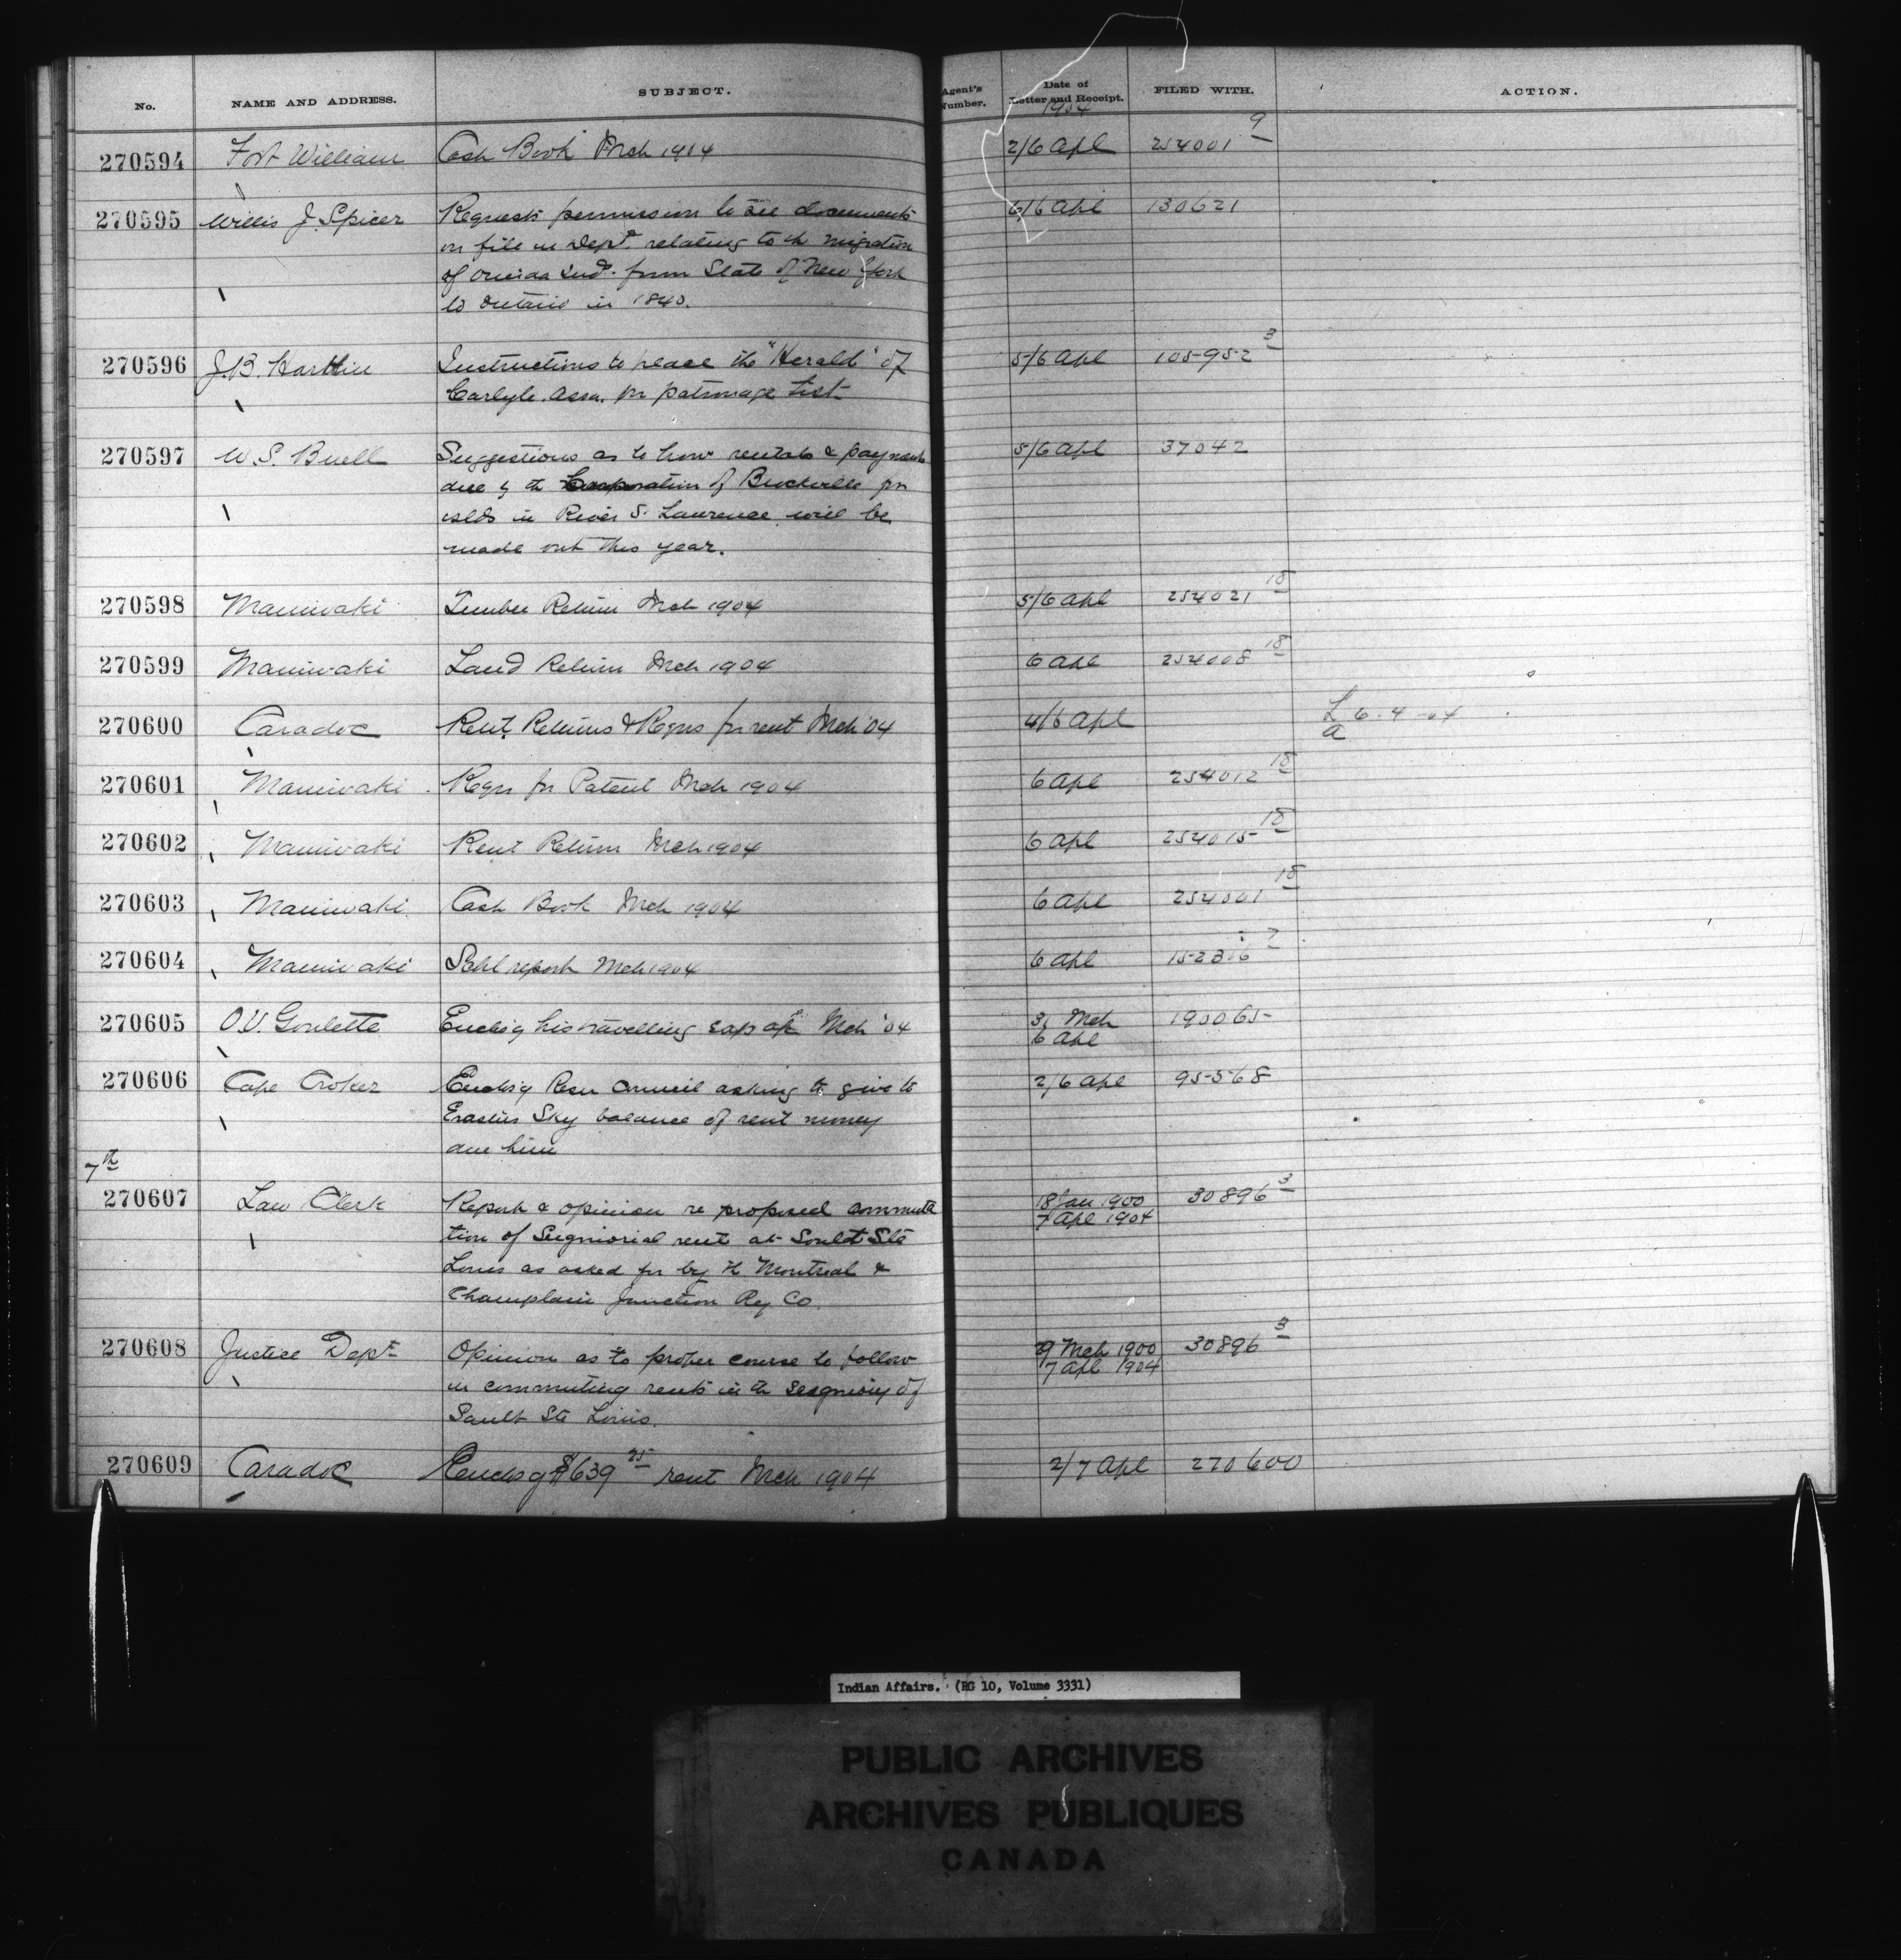 No. NAME AND ADDRESS. SUBJECT. Agent's Number. Date of Letter and Receipt. FILED WITH. ACTION.
1904
270594 Fort William Cash Book Mch 1904 2/6 Apl 254001 9
270595 Willis J. Spicer Requests permission to see documents 6/6 Apl 130621
on file in Dept. relating to th migration
of Oneida Inds. from State of New York
to Ontario in 1840.
270596 J.B. Harkin Instructions to place the "Herald" of 5/6 Apl 105952 3
Carlyle. Assa. on patronage list
270597 W. S. Buell Suggestions as to how rentals & payments 5/6 Apl 37042
due by th Corporation of Brockville for
islds in River St. Lawrence will be
made out this year.
270598 Maniwaki Timber Return Mch 1904 5/6 Apl 254021 18
270599 Maniwaki Land Return Mch 1904 6 Apl 254008 18
270600 Caradoc Rent Returns & Reqns for rent Mch '04 4/6 Apl L 6-4-04
a
270601 Maniwaki Reqns for Patent Mch 1904 6 Apl 254012 18
270602 Maniwaki Rent Return Mch 1904 6 Apl 254015 18
270603 Maniwaki Cash Book Mch 1904 6 Apl 254001 18
270604 Maniwaki Schl report Mch 1904 6 Apl 152316 7
270605 O.V. Goulette Enclsg his travelling exps Mch '04 31 Mch 190065
6 Apl
270606 Cape Croker Enclosg Resn Council asking to give to 2/6 Apl 95568
Erastus Sky balance of rent money
due him
7th
270607 Law Clerk Report & opinion re proposed commuta 18 Jan 1900 30896 3
7 Apl 1904
tion of Seigniorial rent at Sault Ste
Louis as asked for by th Montreal &
Champlain Junction Ry Co.
270608 Justice Dept Opinion as to proper course to follow 29 Mch 1900 30896 3
7 Apl 1904
in commuting rents in th Seigniory of
Sault Ste Louis.
270609 Caradoc Enclosg $639 25 rent Mch 1904 2/7 Apl 270600
Indian Affairs. (RG 10, Volume 3331)
PUBLIC ARCHIVES
ARCHIVES PUBLIQUES
CANADA